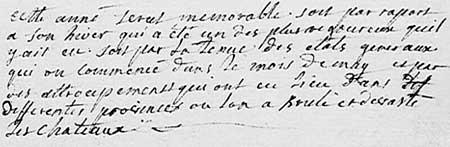 cette anné serat memorable. soit par raport
a son hiver qui a été un des plus rigoureux quil
y ait eu. soit par la tenue des etats generaux
qui on commencé dans le mois de may et par
des attroupements qui ont eu lieu dans des
differentes provinces ou lon a brulé et devasté
les chateaux